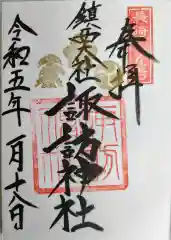 奉拝
鎮西大社
諏訪神社
令和五年一月十八日